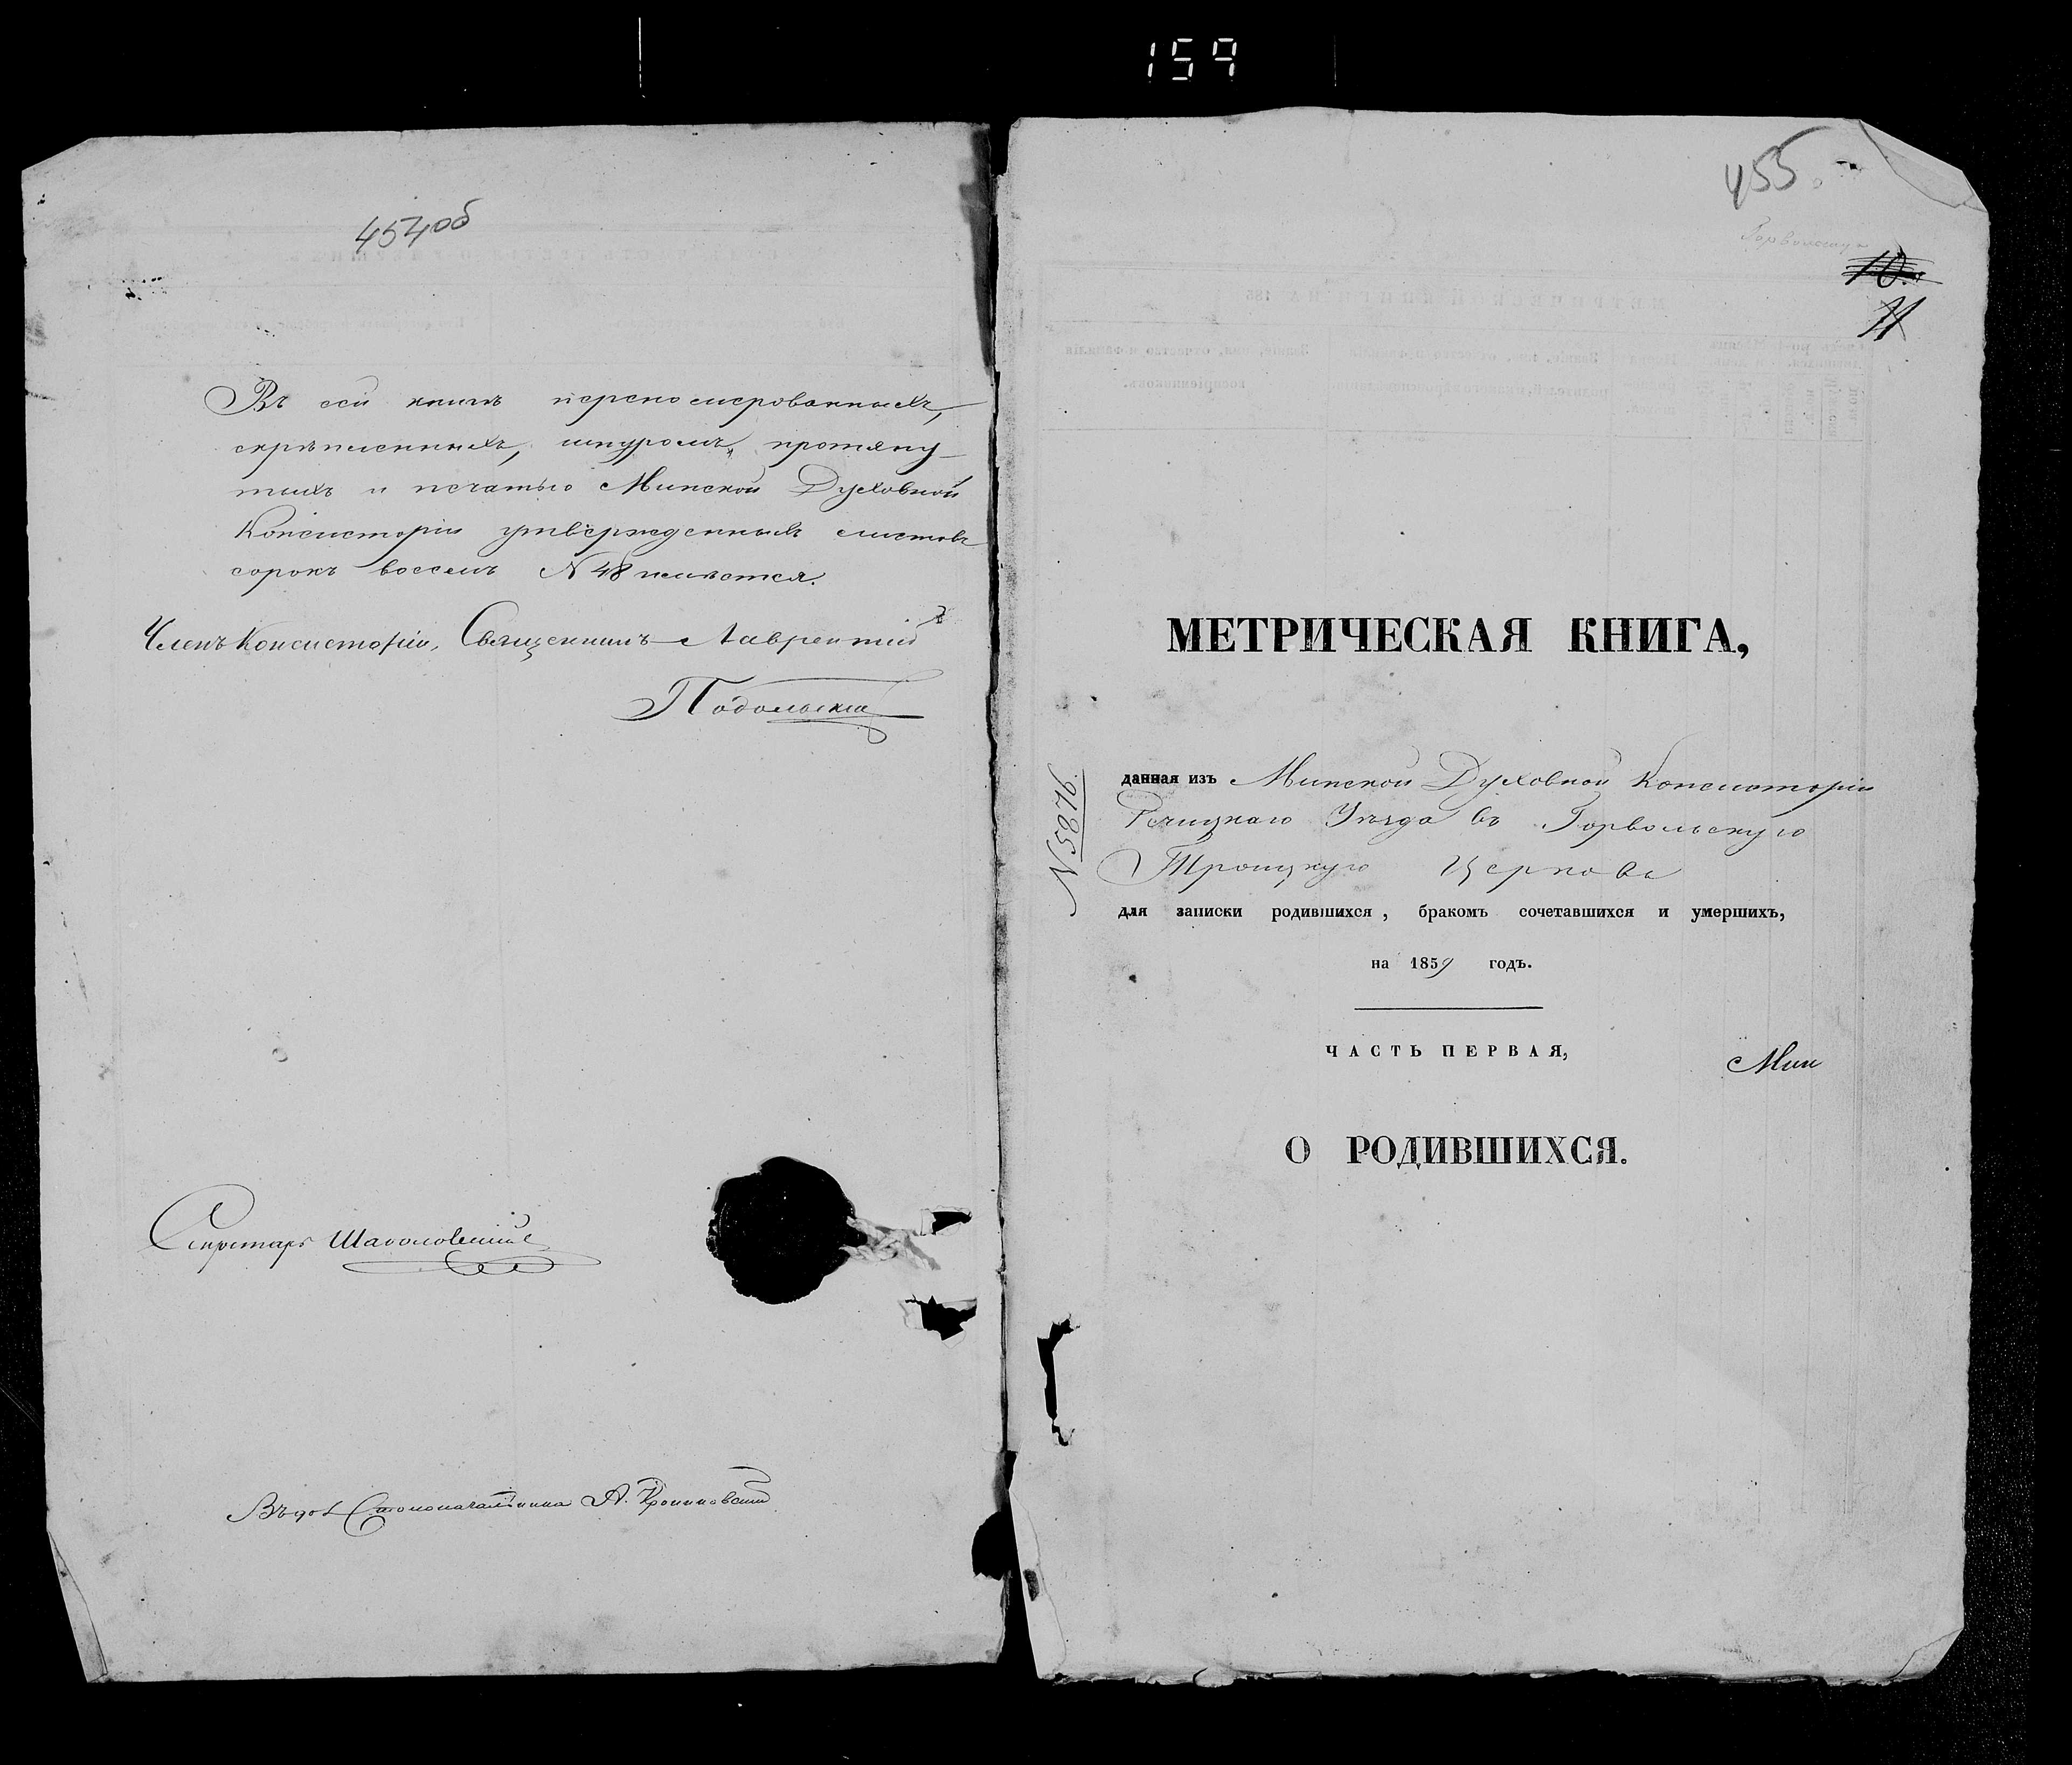 159
454об
Въ сей книгѣ перенумерованныхъ,
скрѣпленныхъ, шнуромъ протяну-
тыхъ и печатью Минской Духовной
Консисторіи утвержденныхъ листовъ
сорокъ восемь N 48 имѣется.
Членъ Консисторіи, Священникъ Лаврентій
Подольскій
Секретарь
Столоначальника А.
455
Горвольская
10.
11
МЕТРИЧЕСКАЯ КНИГА,
N 5876
данная изъ Минской Духовной Консисторіи
Речицкаго Уѣзда въ Горвольскую
Троицкую Церковь
для записки родившихся, бракомъ сочетавшихся и умершихъ,
на 1859 годъ.
ЧАСТЬ ПЕРВАЯ,
Мин
О РОДИВШИХСЯ.